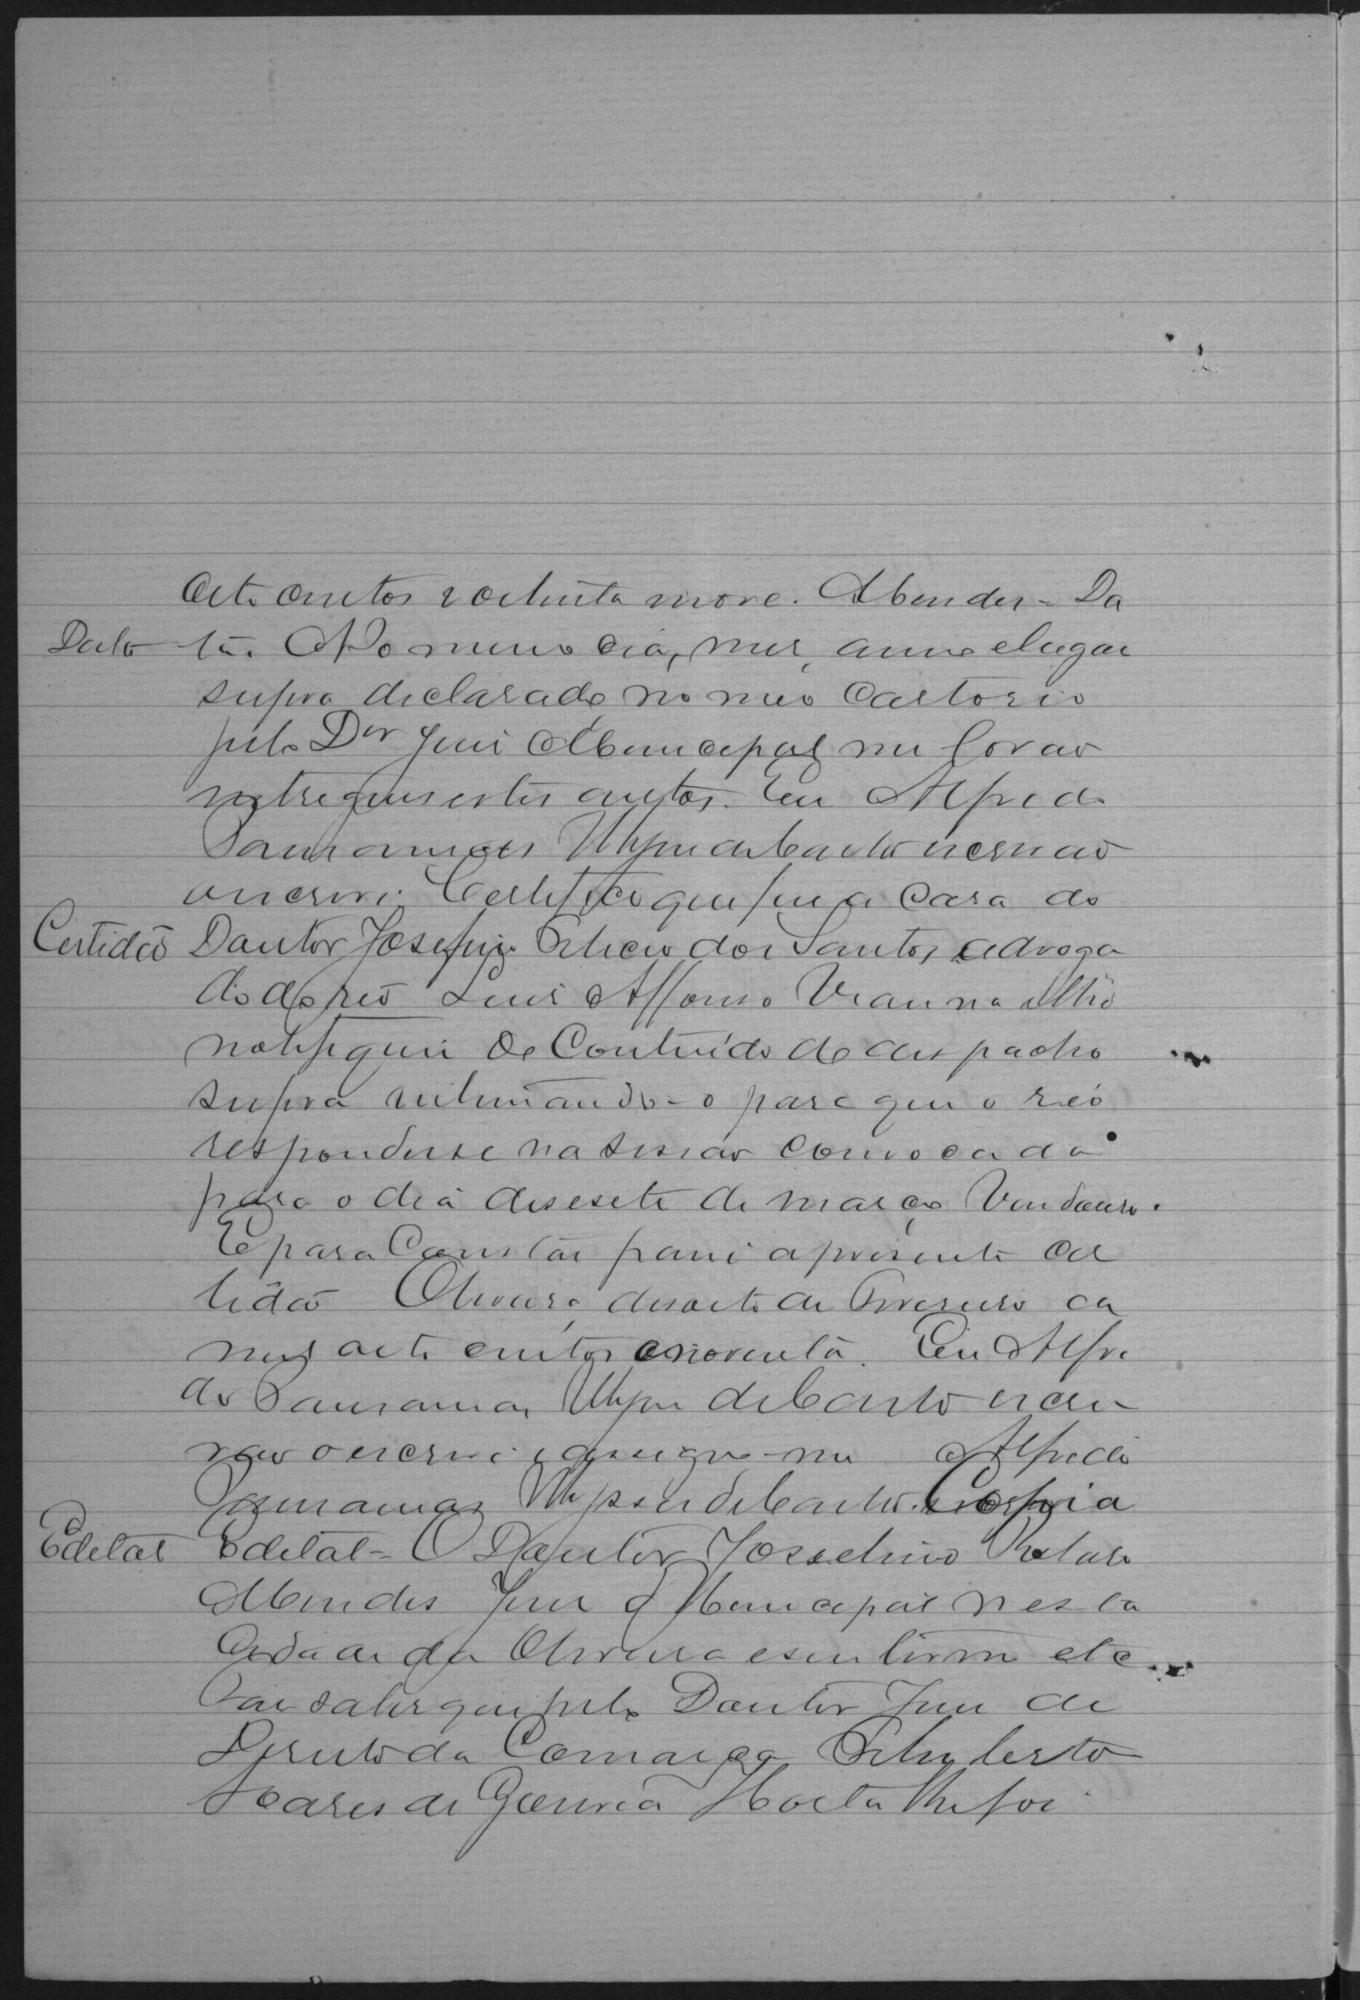 oito centos e oitenta nove. Mendes = Da
Data
ta. No mesmo dia, mes, anno e lugar
supra declarado no meo Cartorio
pelo Dor Juis Municipal me forao
entregues estes autos. Eu Alfredo
de Castro escrivão
o escrevi. Certifico que fui a casa do
Certidão
Doutor dos Santos advoga
do do reo Luis Affonso Vianna e lhe
notifiquei o conteúdo do despacho
supra intimando-o para que o reo
respondesse na sessão convocada
para o dia desesete de março vendouro.
E para constar passei a presente cer
tidão Oliveira, desoito de Fevereiro de
mil oito centos e noventa. Eu Alfre
do de Castro escri
vão o escrevi e assigno-me Alfredo
de Castro. Copia
Edital
Edital = O Doutor Josselino
Mendes Juis Municipal nesta
Cidade da Oliveira e seu termo etc
Faz saber que pelo Doutor Juis de
Dereito da Comarca
Soares de Gouvea Horta lhe foi